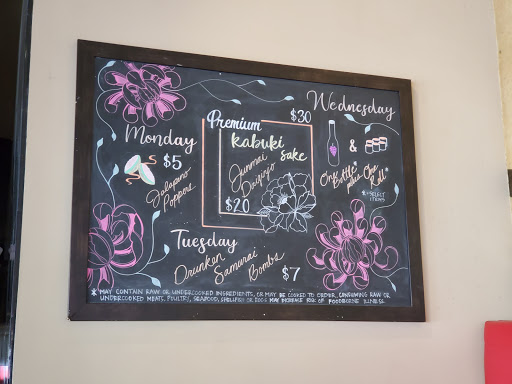 Monday
$5
Jalapeno
Poppers
Premium
kabuki
sake
Junmai
Daiginjo
$20
Wednesday
$30
&
One
Bottle*
plus One
Roll*
*SELECT
ITEMS
Tuesday
Drunken
Samurai
Bombs
$7
* MAY CONTAIN RAW OR UNDERCOOKED INGREDIENTS, OR MAY BE COOKED TO ORDER. CONSUMING RAW OR
UNDERCOOKED MEATS, POULTRY, SEAFOOD, SHELLFISH OR EGGS MAY INCREASE RISK OF FOODBORNE ILLNESS.